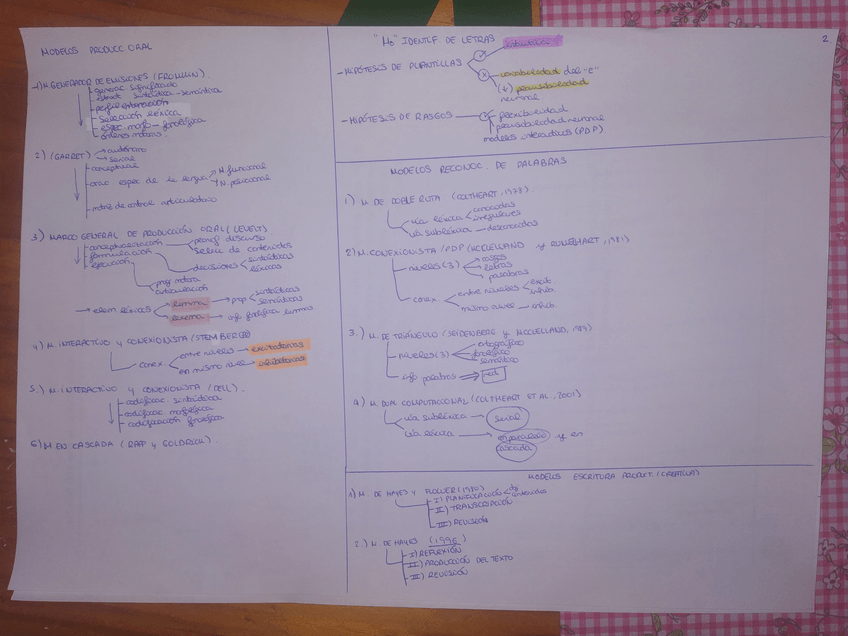 MODELOS PRODUCC ORAL
1) M GENERADOR DE EMISIONES (FROMKIN)
generac significado
estruct sintáctica-semántica
perfil entonación
selección léxica
espec. morfo-fonológica
órdenes motoras
2) (GARRET)
autónomo
serial
conceptual
espec de la lengua
N. funcional
N. posicional
motriz de control articulatorio
3) MARCO GENERAL DE PRODUCCIÓN ORAL (LEVELT)
conceptualización
planif discurso
selecc de contenidos
formulación
decisiones
sintácticas
léxicas
ejecución
prog motora
articulación
elem léxicos
lemma
prop
sintácticas
semánticas
lexema
info fonológica lemma
4) M. INTERACTIVO Y CONEXIONISTA (STEMBERGER)
conex.
entre niveles
excitatorias
en mismo nivel
inhibitorias
5.) M. INTERACTIVO Y CONEXIONISTA (DELL).
codificac. sintáctica
codificac. morfológica
codificación fonológica
6) M. EN CASCADA (RAPP Y GOLDRICK).
2
"Mo" IDENTIF DE LETRAS
- HIPÓTESIS DE PLANTILLAS
variabilidad del
(↓) plausibilidad
neuronal
- HIPÓTESIS DE RASGOS
flexibilidad
plausibilidad neuronal
modelos interactivos (PDP)
MODELOS RECONOC. DE PALABRAS
1) M. DE DOBLE RUTA (COLTHEART, 1978).
vía léxica
conocidas
irregulares
vía subléxica
desconocidas
2) M. CONEXIONISTA /PDP (MCCLELLAND Y RUMELHART, 1981)
niveles (3)
rasgos
letras
palabras
conex
entre niveles
excit
inhib.
mismo nivel
inhib.
3.) M. DE TRIÁNGULO (SEIDENBERG Y MCCLELLAND, 1989)
niveles (3)
ortográfico
fonológico
semántico
info palabras
red
4) M. DUAL COMPUTACIONAL (COLTHEART ET AL, 2001)
vía subléxica
serial
vía léxica
en paralelo y en
cascada
MODELOS ESCRITURA PRODUCT. (CREATIVA)
1) M. DE HAYES Y FLOWER (1980)
I) PLANIFICACIÓN
II) TRANSCRIPCIÓN
III) REVISIÓN
2.) M. DE HAYES (1996)
I) REFLEXIÓN
II) PRODUCCIÓN DEL TEXTO
III) REVISIÓN